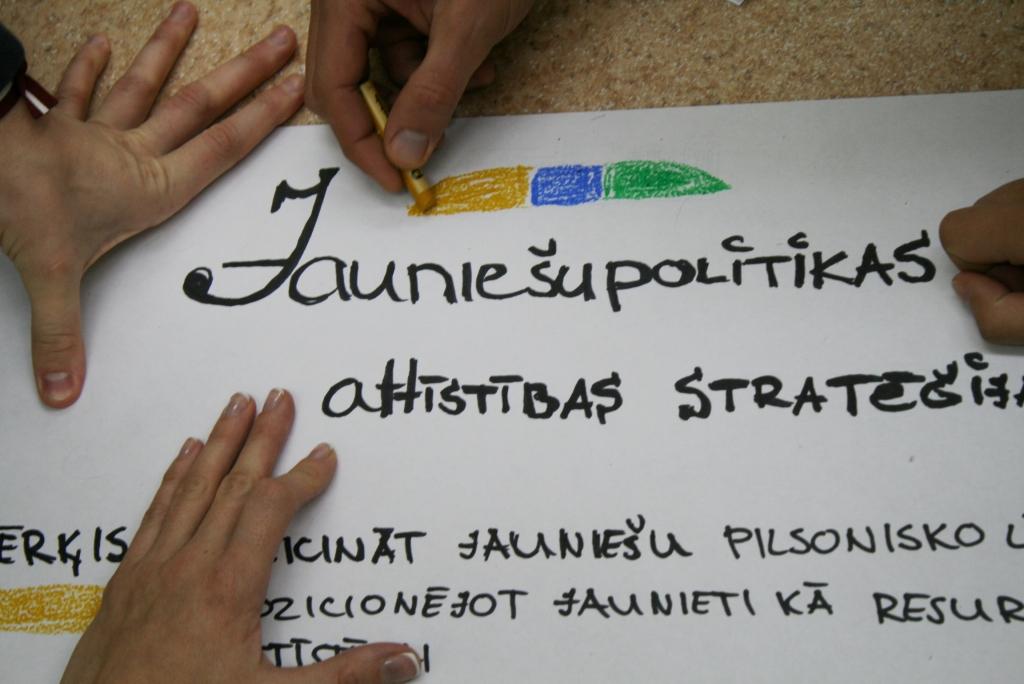 Jauniešupolitikas
attīstības stratēģija
ērķis icināt jauniešu pilsonisko
ozicionējot jaunieti kā resur